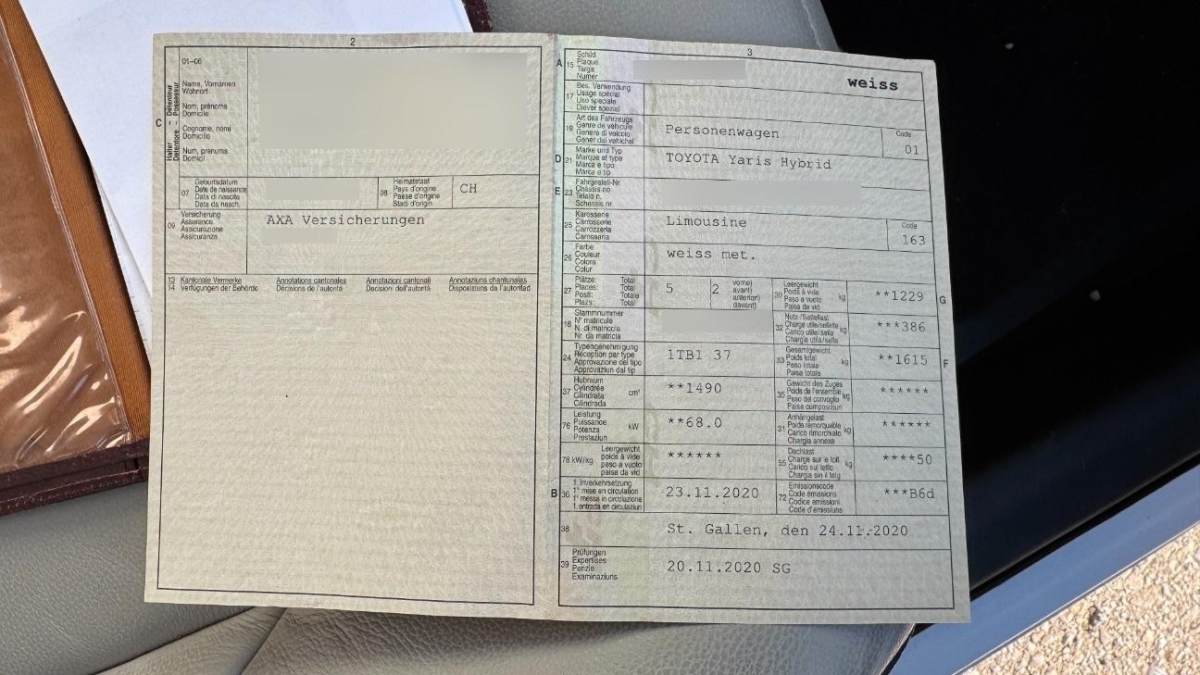 2
01-06
C
Halter - Détenteur
Detentore - Possessur
Name, Vornamen
Wohnort
Nom, prénoms
Domicile
Cognome, nomi
Domicilio
Num, pranums
Domicil
07
Geburtsdatum
Date de naissance
Data di nascita
Data da nasch.
08
Heimatstaat
Pays d'origine
Paese d'origine
Stadi d'origin
CH
09
Versicherung
Assurance
Assicurazione
Assicuranza
AXA Versicherungen
13 Kantonale Vermerke Annotations cantonales Annotazioni cantonali Annotaziuns chantunalas
14 Verfügungen der Behörde Décisions de l'autorité Decisioni dell'autorità Disposiziuns da l'autoritad
3
A 15
Schild
Plaque
Targa
Numer
weiss
17
Bes. Verwendung
Usage spécial
Uso speciale
Diever spezial
19
Art des Fahrzeugs
Genre de véhicule
Genere di veicolo
Gener dal vehichel
Personenwagen
Code
01
D 21
Marke und Typ
Marque et type
Marca e tipo
Marca e tip
TOYOTA Yaris Hybrid
E 23
Fahrgestell-Nr
Châssis no
Telaio n.
Schassis nr.
25
Karosserie
Carrosserie
Carrozzeria
Carrossaria
Limousine
Code
163
26
Farbe
Couleur
Colore
Colur
weiss met.
27
Plätze: Total
Places: Total
Posti: Totale
Plazs: Total
5
2
vorne)
avant)
anteriori)
davant)
30
Leergewicht
Poids à vide
Peso a vuoto
Paisa da vid
kg
**1229
G
18
Stammnummer
N° matricule
N. di matricola
Nr. da matricla
32
Nutz-/Sattellast
Charge utile/sellette
Carico utile/sella
Chargia utila/sella
kg
***386
24
Typengenehmigung
Réception par type
Approvazione del tipo
Approvaziun dal tip
1TB1 37
33
Gesamtgewicht
Poids total
Peso totale
Paisa totala
kg
**1615
F
37
Hubraum
Cylindrée
Cilindrata
Cilindrada
cm³
**1490
35
Gewicht des Zuges
Poids de l'ensemble
Peso del convoglio
Paisa cumposiziun
kg
******
76
Leistung
Puissance
Potenza
Prestaziun
kW
**68.0
31
Anhängelast
Poids remorquable
Carico rimorchiato
Chargia annexa
kg
******
78 kW/kg
Leergewicht
poids à vide
peso a vuoto
paisa da vid
******
55
Dachlast
Charge sur le toit
Carico sul tetto
Chargia sin il tetg
kg
****50
B 36
1. Inverkehrsetzung
1re mise en circulation
1a messa in circolazione
1. entrada en circulaziun
23.11.2020
72
Emissionscode
Code émissions
Codice emissioni
Code d'emissiuns
***B6d
38
St. Gallen, den 24.11.2020
39
Prüfungen
Expertises
Perizie
Examinaziuns
20.11.2020 SG